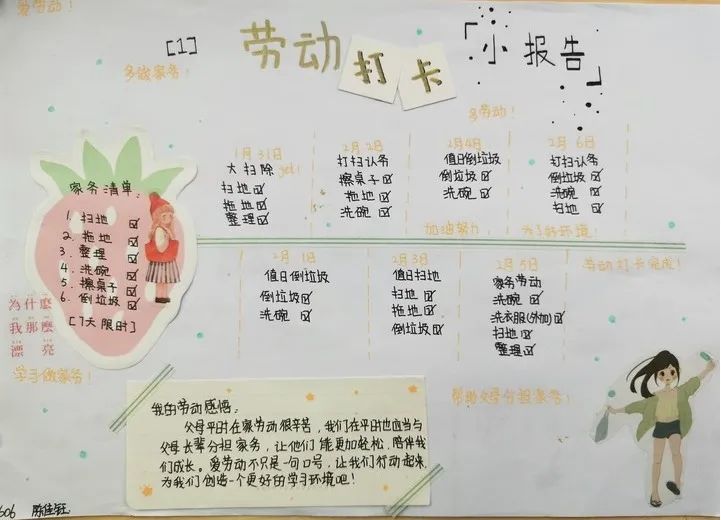 爱劳动！
[1]
劳动打卡「小报告」
多做家务！
多劳动！
家务清单：
1. 扫地 ☑
2. 拖地 ☑
3. 整理 ☑
4. 洗碗 ☑
5. 擦桌子 ☑
6. 倒垃圾 ☑
[7天限时]
為什麼
我那麼
漂亮
学习做家务！
1月31日
大扫除 yet!
扫地 ☑
拖地 ☑
整理 ☑
2月2日
打扫认务
擦桌子 ☑
拖地 ☑
洗碗 ☑
2月4日
值日倒垃圾
倒垃圾 ☑
洗碗 ☑
2月6日
打扫认务
倒垃圾 ☑
洗碗 ☑
扫地 ☑
加油努力，为了好环境！
2月1日
值日倒垃圾
倒垃圾 ☑
洗碗 ☑
2月3日
值日扫地
扫地 ☑
拖地 ☑
倒垃圾 ☑
2月5日
家务劳动
洗碗 ☑
洗衣服(外加) ☑
扫地 ☑
整理 ☑
劳动打卡完成！
帮助父母分担家务！
我的劳动感悟：
父母平时在家劳动很辛苦，我们在平时也应当与
父母长辈分担家务，让他们能更加轻松，陪伴我
们成长。爱劳动不只是一句口号，让我们行动起来，
为我们创造一个更好的学习环境吧！
606 陈佳钰